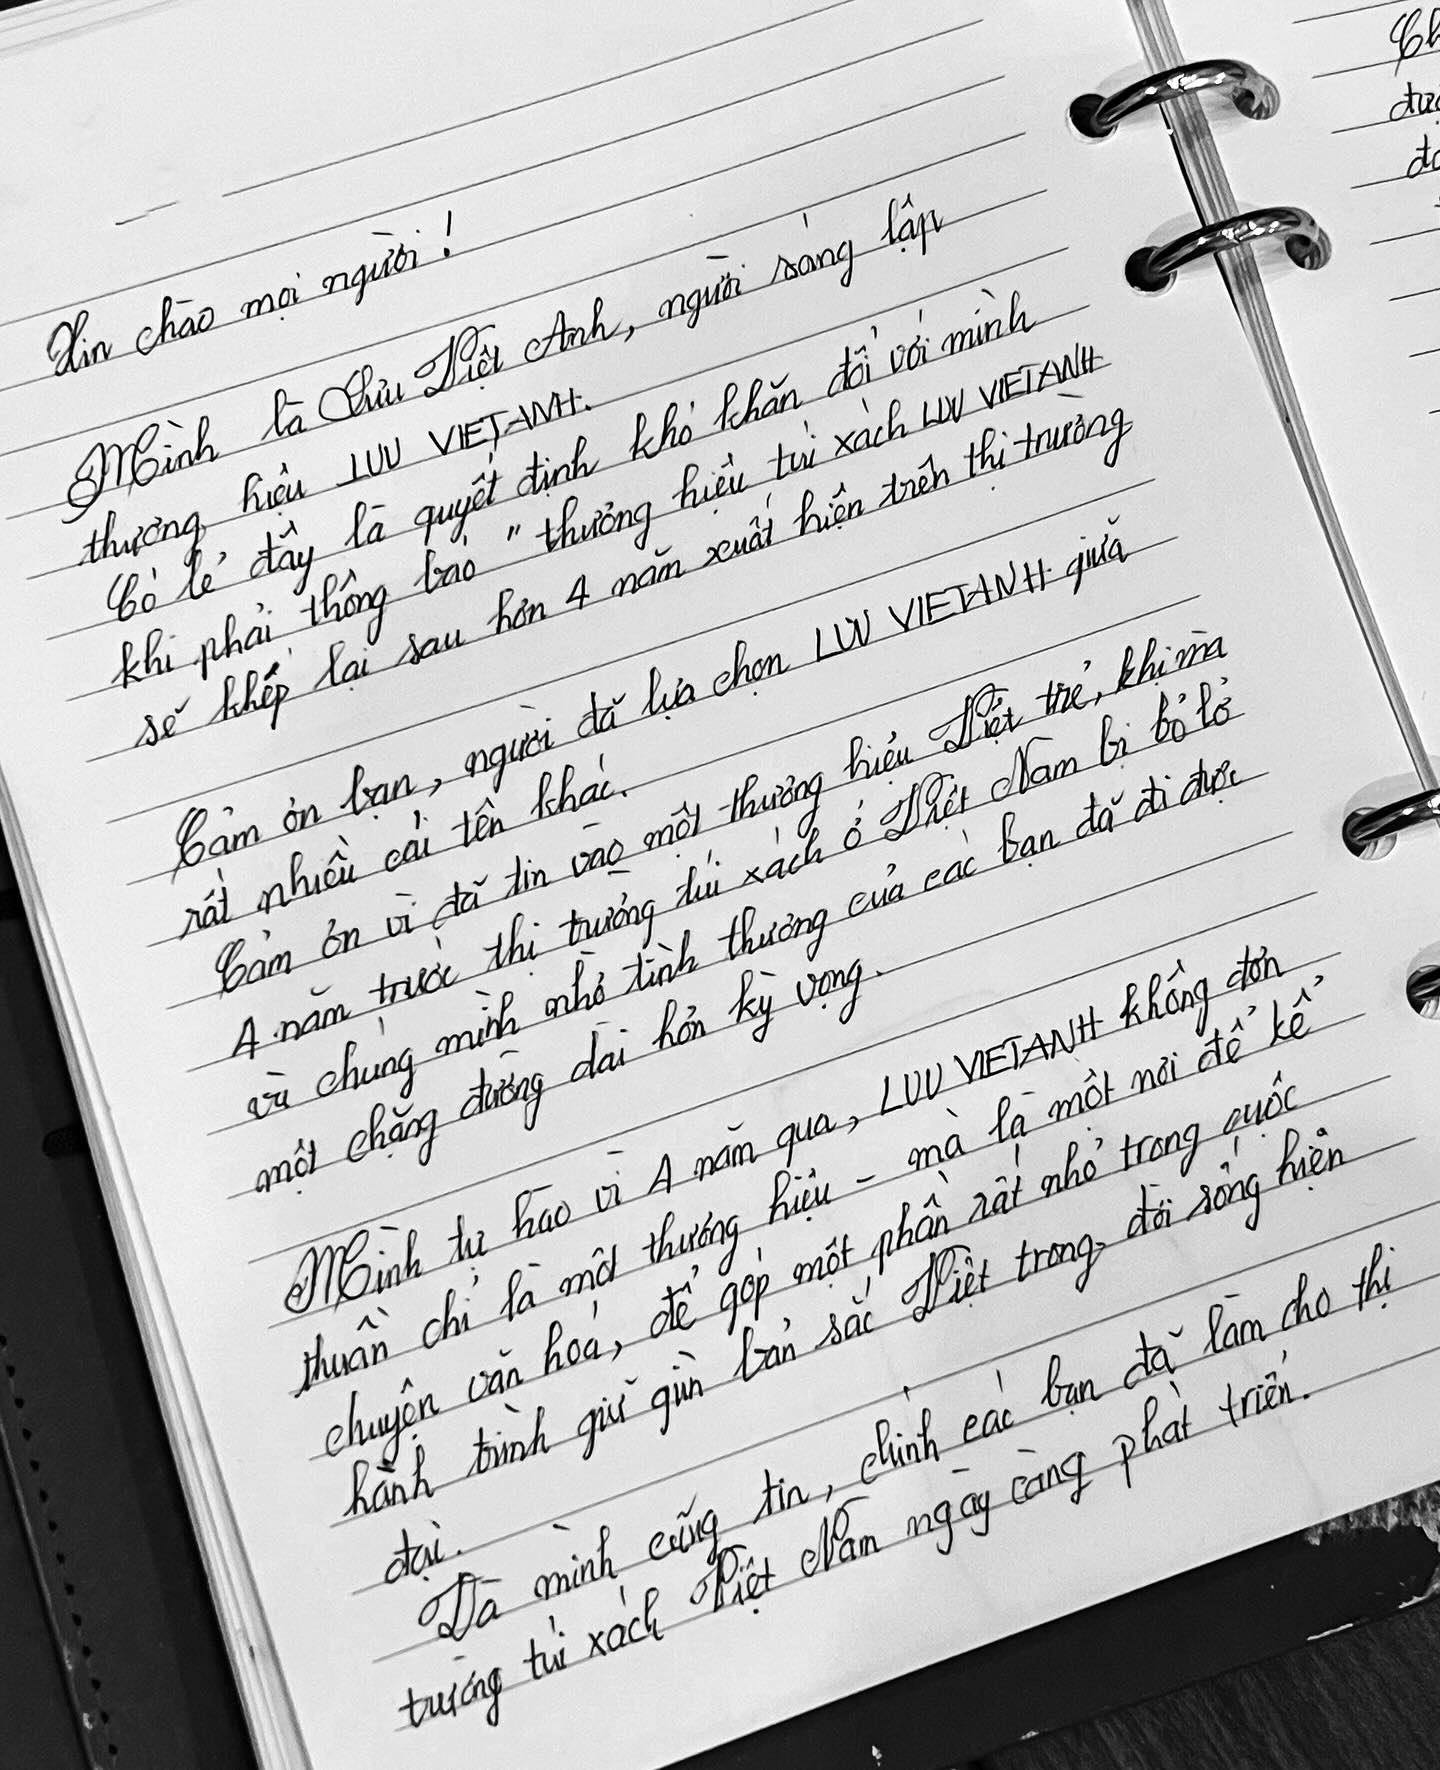 Xin chào mọi người!
Mình là Lưu Việt Anh, người sáng lập
thương hiệu LUU VIETANH.
Có lẽ đây là quyết định khó khăn đối với mình
khi phải thông báo "thương hiệu túi xách LUU VIETANH
sẽ khép lại sau hơn 4 năm xuất hiện trên thị trường
Cảm ơn bạn, người đã lựa chọn LUU VIETANH giữa
rất nhiều cái tên khác.
Cảm ơn vì đã tin vào một thương hiệu Việt trẻ, khi mà
4 năm trước thị trường túi xách ở Việt Nam bị bỏ lỡ
và chúng mình nhờ tình thương của các bạn đã đi được
một chặng đường dài hơn kỳ vọng.
Mình tự hào vì 4 năm qua, LUU VIETANH không đơn
thuần chỉ là một thương hiệu - mà là một nơi để kể
chuyện văn hoá, để góp một phần rất nhỏ trong cuộc
hành trình giữ gìn bản sắc Việt trong đời sống hiện
đại.
Và mình cũng tin, chính các bạn đã làm cho thị
trường túi xách Việt Nam ngày càng phát triển.